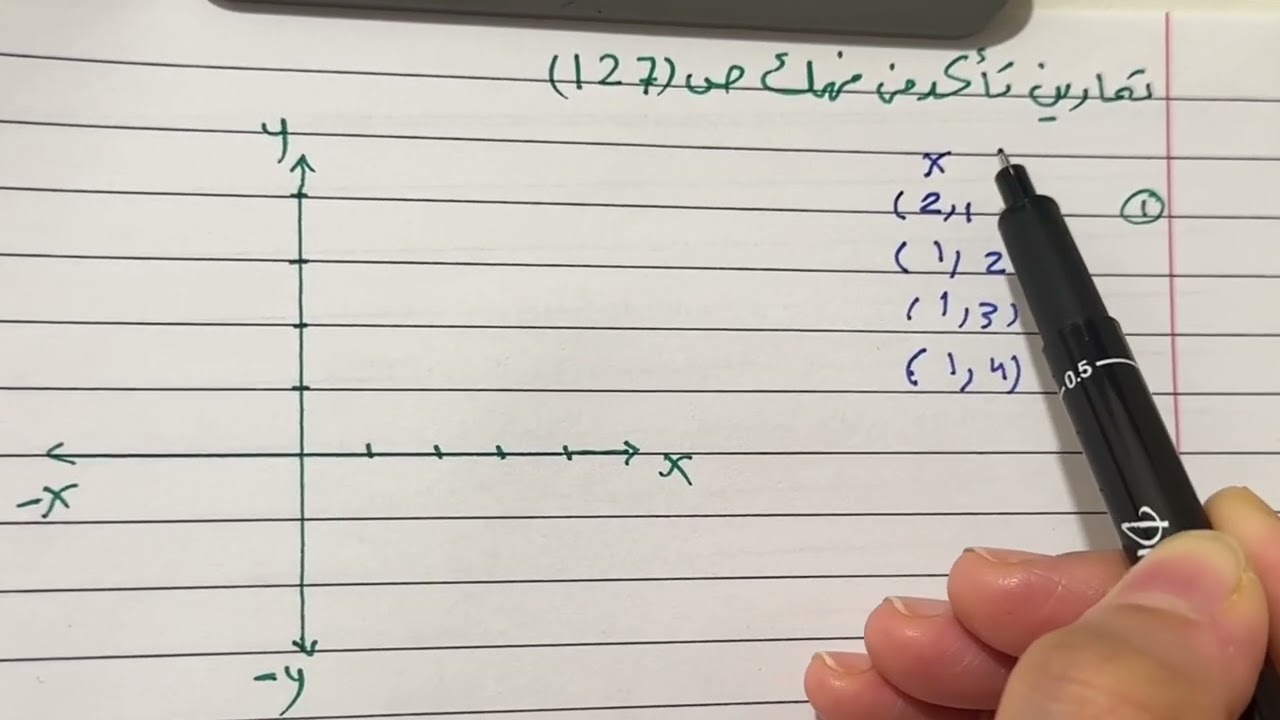 تمارين تأكد من فهمك ص (127)
y
x
①
(2,1
(1,2
(1,3)
(1,4)
x
-x
-y
0.5